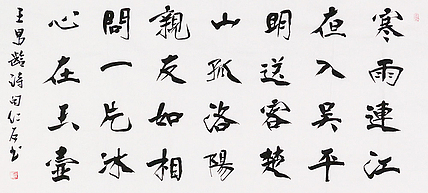 寒雨連江
夜入吳平
明送客楚
山孤洛陽
親友如相
問一片冰
心在玉壺
王昌齡詩句仁石书